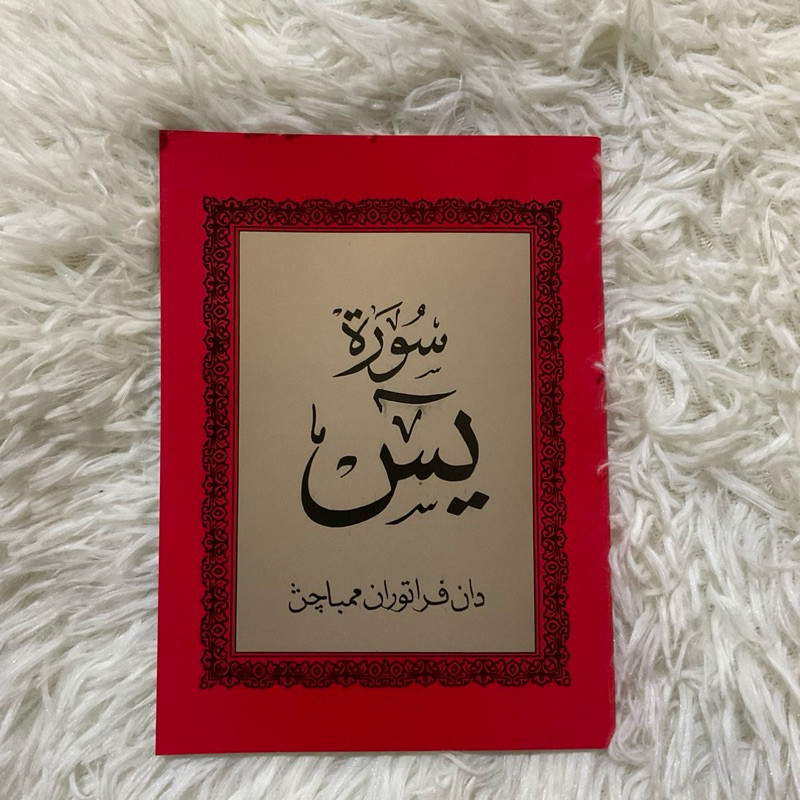 سُورَة
يسٓ
دان فراتوران ممباچڽ